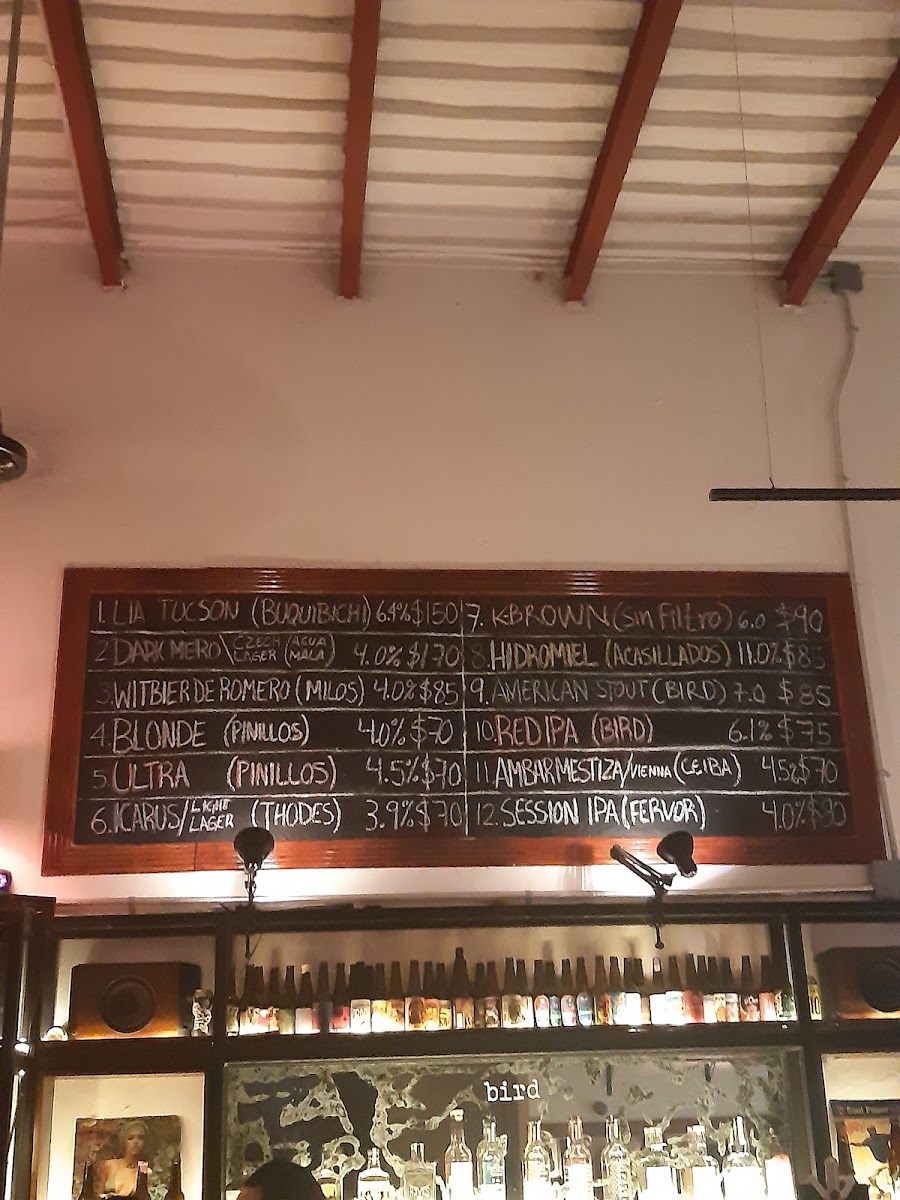 1. LIA TUCSON (BUQUIBICHI) 6.4% $150
2. DARK MERO \ CZECH LAGER (AGUA MALA) 4.0% $170
3. WITBIER DE ROMERO (MILOS) 4.0% $85
4. BLONDE (PINILLOS) 4.0% $70
5. ULTRA (PINILLOS) 4.5% $70
6. ICARUS/LIGHT LAGER (THODES) 3.9% $70
7. KBROWN (Sin Filtro) 6.0 $90
8. HIDROMIEL (ACASILLADOS) 11.0% $85
9. AMERICAN STOUT (BIRD) 7.0 $85
10. RED IPA (BIRD) 6.1% $75
11. AMBAR MESTIZA/VIENNA (CEIBA) 4.5% $70
12. SESSION IPA (FERVOR) 4.0%
bird